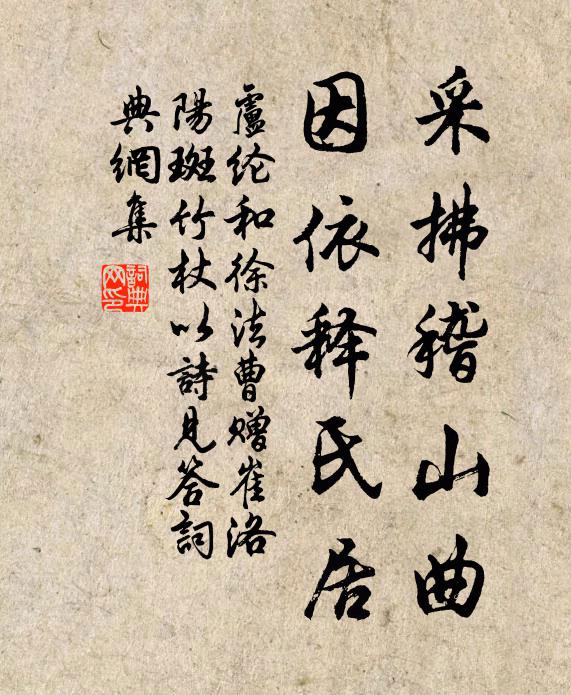 采拂稽山曲
因依释氏居
盧纶和徐法曹赠崔洛
陽斑竹杖以詩見答詞
典網集
詞典网印